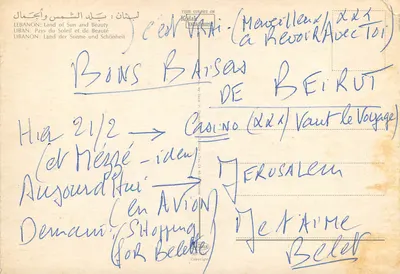 لبنان : بلد الشمس والجمال
LEBANON: Land of Sun and Beauty
LIBAN: Pays du Soleil et de Beauté
LIBANON: Land der Sonne und Schönheit
c'est VRAI (Merveilleux/XXX
à Revoir avec TOI)
BONS BAISERS
DE BEIRUT
Hier 21/2 → CASINO (XXX/Vaut le Voyage)
(et Mézzé - idem)
Aujourd'hui → JERUSALEM
(en AVION)
Demain: (SHOPPING
FOR Belette)
Je t'AIME